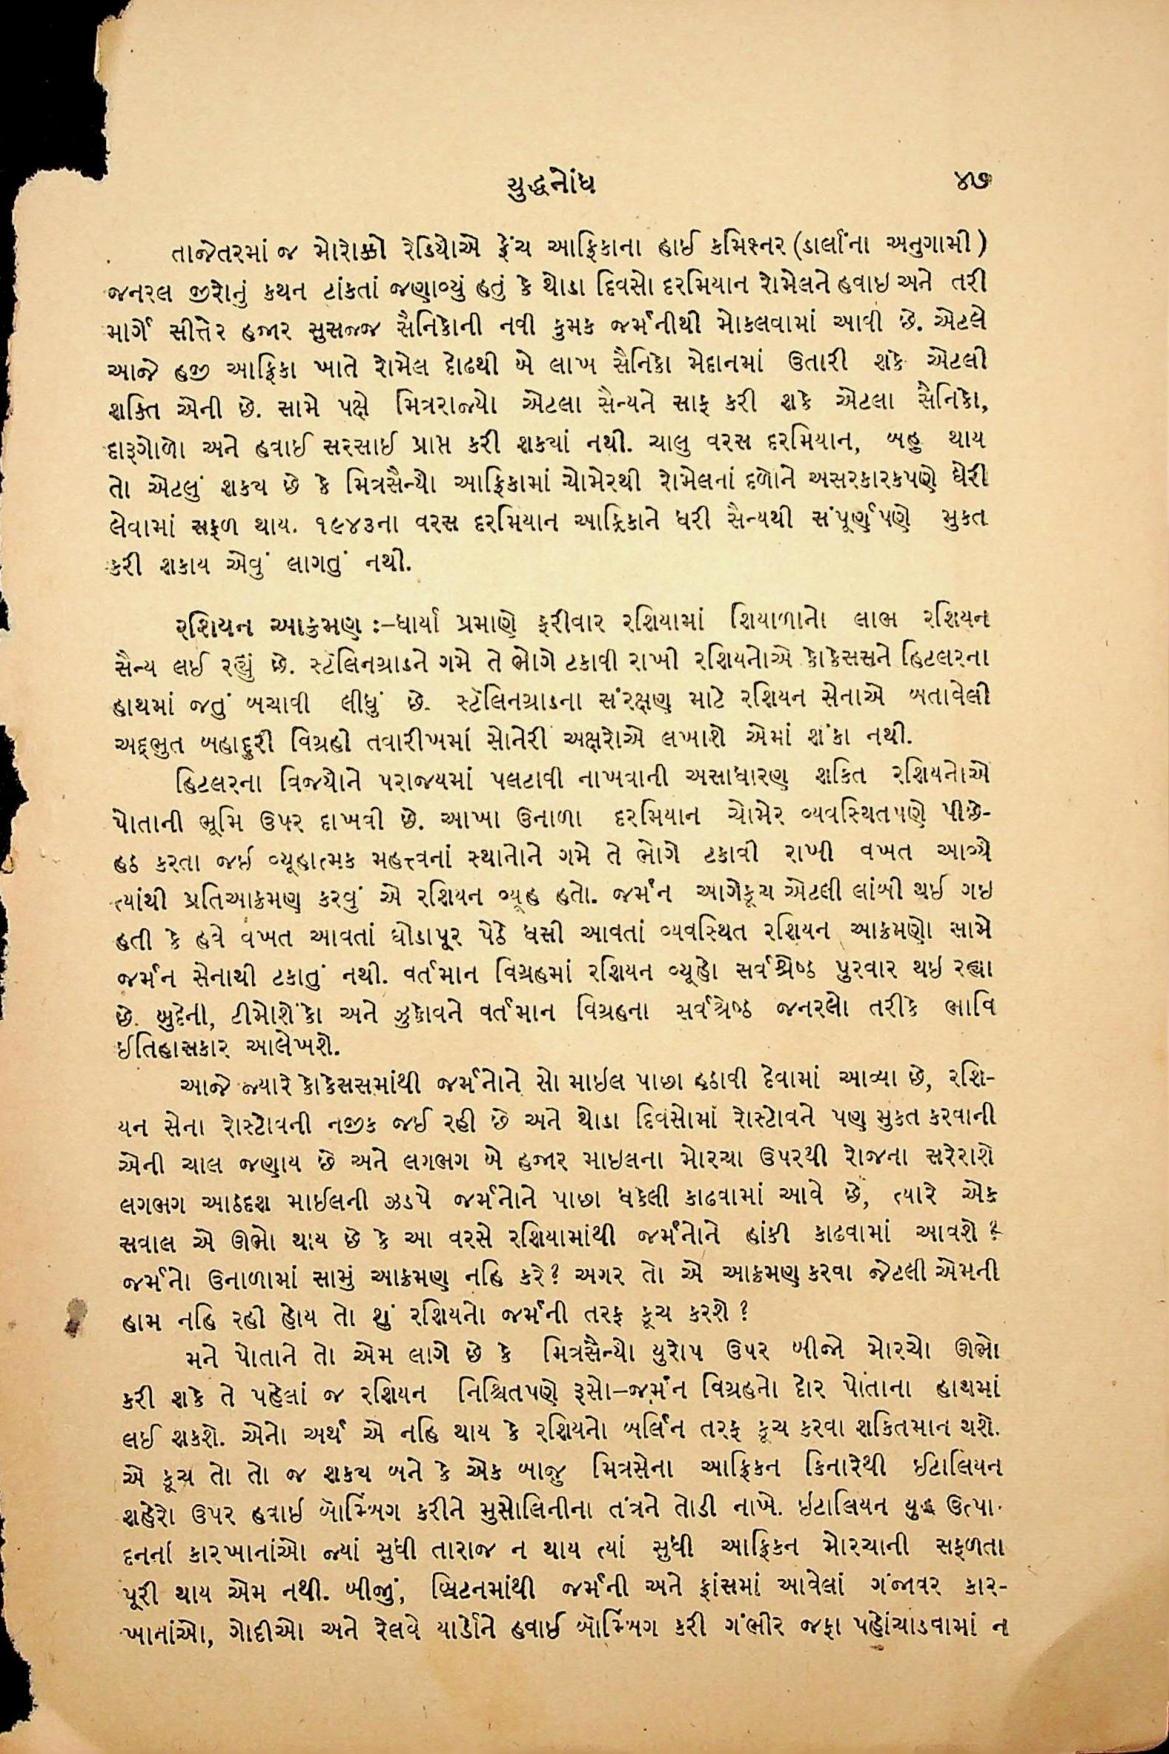 યુદ્ધનોંધ ૪૭
તાજેતરમાં જ મોરોક્કો રેડિયોએ ફ્રેંચ આફ્રિકાના હાઈ કમિશ્નર (ડાર્લાંના અનુગામી)
જનરલ જીરોનું કથન ટાંકતાં જણાવ્યું હતું કે થોડા દિવસો દરમિયાન રોમેલને હવાઇ અને તરી
માર્ગે સીત્તેર હજાર સુસજ્જ સૈનિકોની નવી કુમક જર્મનીથી મોકલવામાં આવી છે. એટલે
આજે હજી આફ્રિકા ખાતે રોમેલ દોઢથી બે લાખ સૈનિકો મેદાનમાં ઉતારી શકે એટલી
શક્તિ એની છે. સામે પક્ષે મિત્રરાજ્યો એટલા સૈન્યને સાફ કરી શકે એટલા સૈનિકો,
દારૂગોળો અને હવાઈ સરસાઈ પ્રાપ્ત કરી શક્યાં નથી. ચાલુ વરસ દરમિયાન, બહુ થાય
તો એટલું શક્ય છે કે મિત્રસૈન્યો આફ્રિકામાં ચોમેરથી રોમેલનાં દળોને અસરકારકપણે ઘેરી
લેવામાં સફળ થાય. ૧૯૪૩ના વરસ દરમિયાન આફ્રિકાને ધરી સૈન્યથી સંપૂર્ણપણે મુકત
કરી શકાય એવું લાગતું નથી.
રશિયન આક્રમણ :–ધાર્યા પ્રમાણે ફરીવાર રશિયામાં શિયાળાનો લાભ રશિયન
સૈન્ય લઈ રહ્યું છે. સ્ટૅલિનગ્રાડને ગમે તે ભોગે ટકાવી રાખી રશિયનોએ કોકેસસને હિટલરના
હાથમાં જતું બચાવી લીધું છે. સ્ટૅલિનગ્રાડના સંરક્ષણ માટે રશિયન સેનાએ બતાવેલી
અદ્ભુત બહાદુરી વિગ્રહી તવારીખમાં સોનેરી અક્ષરોએ લખાશે એમાં શંકા નથી.
હિટલરના વિજયોને પરાજયમાં પલટાવી નાખવાની અસાધારણ શકિત રશિયનોએ
પોતાની ભૂમિ ઉપર દાખવી છે. આખા ઉનાળા દરમિયાન ચોમેર વ્યવસ્થિતપણે પીછે-
હઠ કરતા જઇ વ્યૂહાત્મક મહત્ત્વનાં સ્થાનોને ગમે તે ભોગે ટકાવી રાખી વખત આવ્યે
ત્યાંથી પ્રતિઆક્રમણ કરવું એ રશિયન વ્યૂહ હતો. જર્મન આગેકૂચ એટલી લાંબી થઈ ગઇ
હતી કે હવે વખત આવતાં ઘોડાપૂર પેઠે ધસી આવતાં વ્યવસ્થિત રશિયન આક્રમણો સામે
જર્મન સેનાથી ટકાતું નથી. વર્તમાન વિગ્રહમાં રશિયન વ્યૂહો સર્વશ્રેષ્ઠ પુરવાર થઇ રહ્યા
છે. બુદેની, ટીમોશેંકો અને ઝુકોવને વર્તમાન વિગ્રહના સર્વશ્રેષ્ઠ જનરલો તરીકે ભાવિ
ઈતિહાસકાર આલેખશે.
આજે જ્યારે કોકેસસમાંથી જર્મનોને સો માઇલ પાછા હઠાવી દેવામાં આવ્યા છે, રશિ-
યન સેના રોસ્ટોવની નજીક જઈ રહી છે અને થોડા દિવસોમાં રોસ્ટોવને પણ મુકત કરવાની
એની ચાલ જણાય છે અને લગભગ બે હજાર માઇલના મોરચા ઉપરથી રોજના સરેરાશે
લગભગ આઠદશ માઈલની ઝડપે જર્મનોને પાછા ધકેલી કાઢવામાં આવે છે, ત્યારે એક
સવાલ એ ઊભો થાય છે કે આ વરસે રશિયામાંથી જર્મનોને હાંકી કાઢવામાં આવશે ?
જર્મનો ઉનાળામાં સામું આક્રમણ નહિ કરે? અગર તો એ આક્રમણ કરવા જેટલી એમની
હામ નહિ રહી હોય તો શું રશિયનો જર્મની તરફ કૂચ કરશે ?
મને પોતાને તો એમ લાગે છે કે મિત્રસૈન્યો યુરોપ ઉપર બીજો મોરચો ઊભો
કરી શકે તે પહેલાં જ રશિયન નિશ્ચિતપણે રૂસો–જર્મન વિગ્રહનો દોર પોતાના હાથમાં
લઈ શકશે. એનો અર્થ એ નહિ થાય કે રશિયનો બર્લિન તરફ કૂચ કરવા શકિતમાન થશે.
એ કૂચ તો તો જ શક્ય બને કે એક બાજુ મિત્રસેના આફ્રિકન કિનારેથી ઈટાલિયન
શહેરો ઉપર હવાઇ બૉમ્બિંગ કરીને મુસોલિનીના તંત્રને તોડી નાખે. ઇટાલિયન યુદ્ધ ઉત્પા-
દનનાં કારખાનાંઓ જ્યાં સુધી તારાજ ન થાય ત્યાં સુધી આફ્રિકન મોરચાની સફળતા
પૂરી થાય એમ નથી. બીજું, બ્રિટનમાંથી જર્મની અને ફ્રાંસમાં આવેલાં ગંજાવર કાર-
ખાનાંઓ, ગોદીઓ અને રેલવે યાર્ડોને હવાઈ બૉમ્બિંગ કરી ગંભીર જફા પહોંચાડવામાં ન